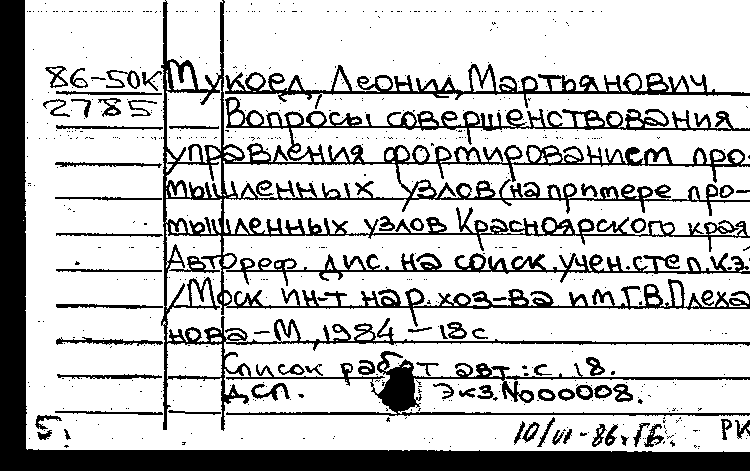 86-50К Мукоед, Леонид Мартьянович.
2785 Вопросы совершенствования
управления формированием про-
мышленных узлов (на примере про-
мышленных узлов Красноярского края
Автореф. дис. на соиск. учен. степ. к.э.
/Моск ин-т нар. хоз-ва им. Г.В. Плеха
нова. - М., 1984. - 18 с.
Список работ авт.: с. 18.
ДСП. Экз. №000008.
5. 10/VI-86. ГБ. РК